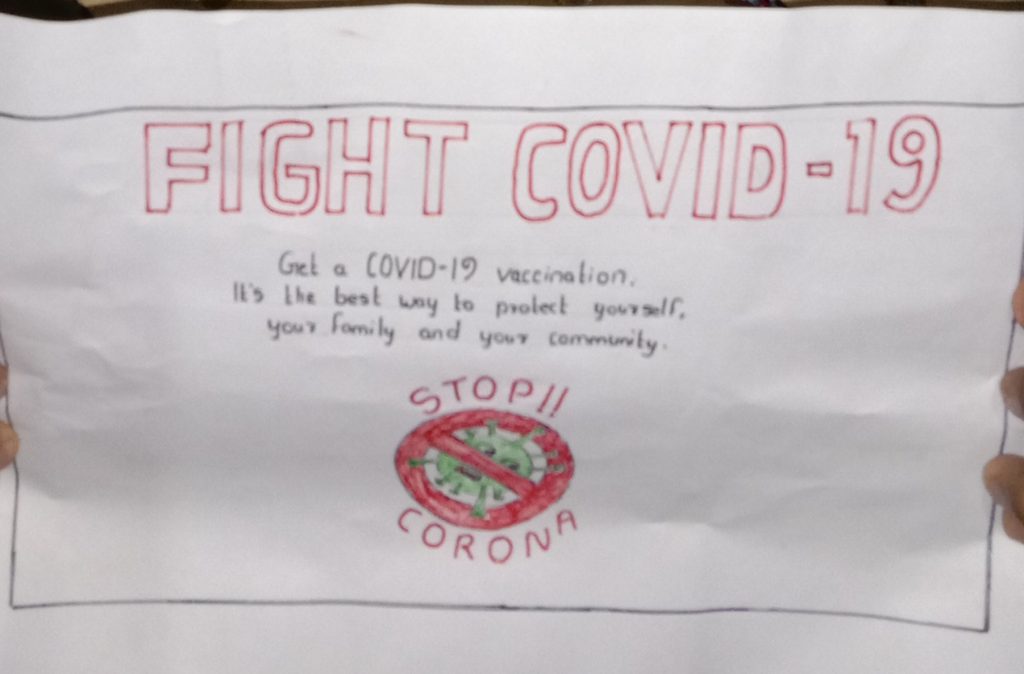 FIGHT COVID-19
Get a COVID-19 vaccination.
It's the best way to protect yourself,
your family and your community.
STOP!!
CORONA